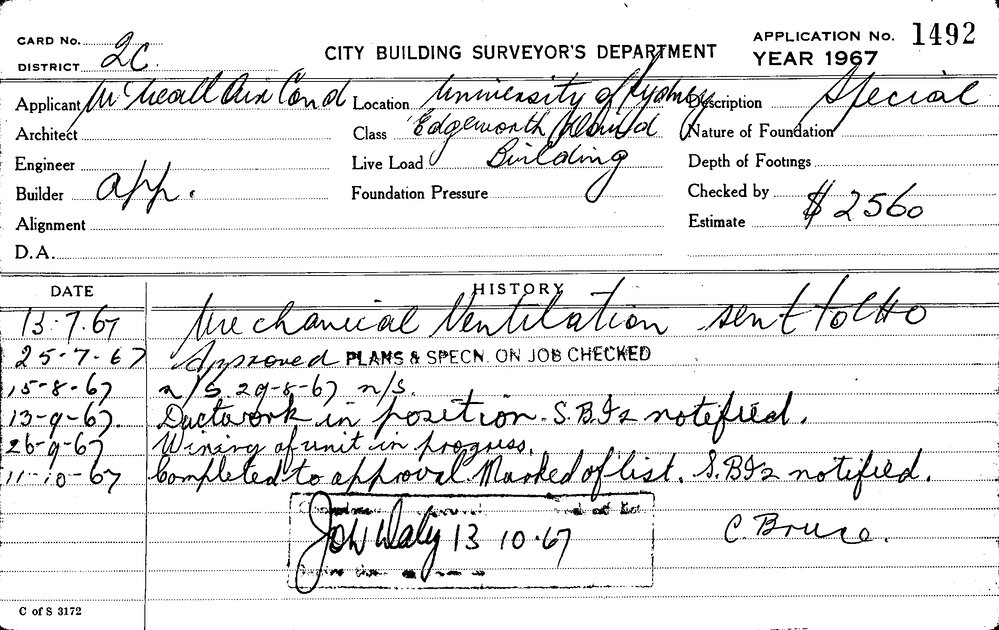 CARD No.
DISTRICT 2C.
CITY BUILDING SURVEYOR'S DEPARTMENT
APPLICATION No. 1492
YEAR 1967
Applicant Air Cond Location University of Sydney Description Special
Architect Class Edgeworth David Nature of Foundation
Engineer Live Load Building Depth of Footings
Builder app. Foundation Pressure Checked by
Alignment Estimate $2560
D.A.
DATE HISTORY
13-7-67 Mechanical Ventilation sent to CHO
25-7-67 Approved PLANS & SPECN. ON JOB CHECKED
15-8-67 n/s. 29-8-67 n/s.
13-9-67. Ductwork in position. S.B.I2 notified.
26-9-67 Wiring of unit in progress.
11-10-67 Completed to approval. Marked of list. S.B.I2 notified.
13 10-67 C. Bruce.
C of S 3172